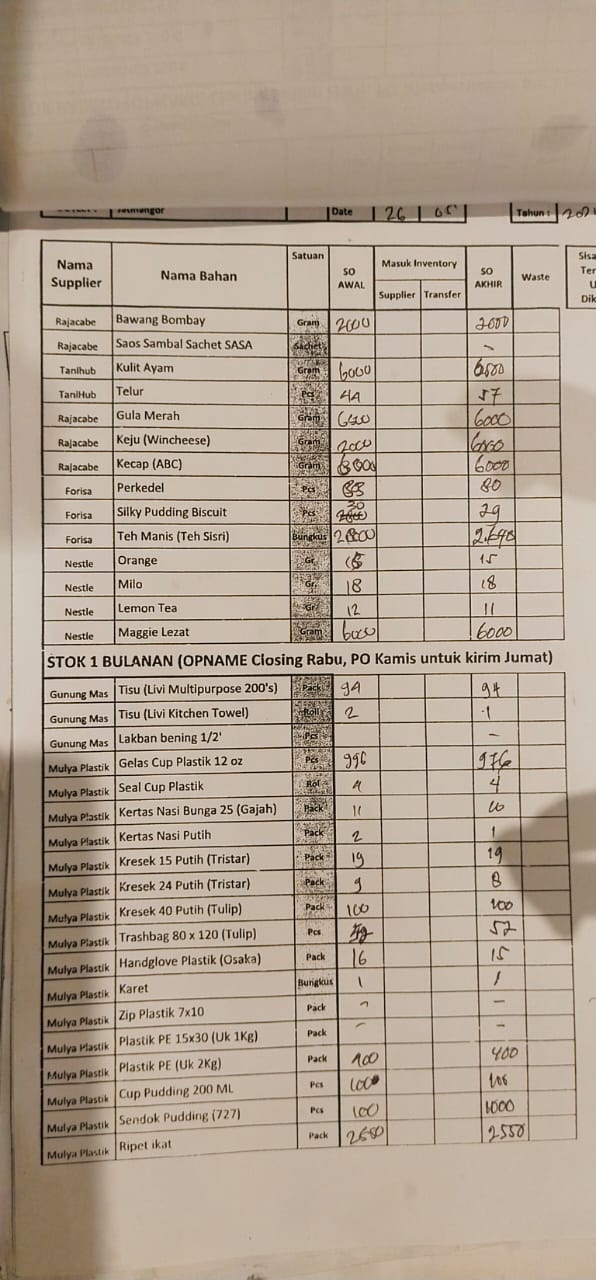 Jatinangor Date 26 05 Tahun : 202
Nama Supplier Nama Bahan Satuan SO AWAL Masuk Inventory Supplier Transfer SO AKHIR Waste Sisa
Rajacabe Bawang Bombay Gram 2000 2000
Rajacabe Saos Sambal Sachet SASA Sachet -
Tanihub Kulit Ayam Gram 6000
TaniHub Telur Pcs 44 57
Rajacabe Gula Merah Gram 6000
Rajacabe Keju (Wincheese) Gram 2000
Rajacabe Kecap (ABC) Gram 6000
Forisa Perkedel Pcs 80
Forisa Silky Pudding Biscuit Pcs 30 29
Forisa Teh Manis (Teh Sisri) Bungkus
Nestle Orange Gr 15
Nestle Milo Gr 18 18
Nestle Lemon Tea Gr 12 11
Nestle Maggie Lezat Gram 6000 6000
STOK 1 BULANAN (OPNAME Closing Rabu, PO Kamis untuk kirim Jumat)
Gunung Mas Tisu (Livi Multipurpose 200's) Pack 94 94
Gunung Mas Tisu (Livi Kitchen Towel) Roll 2 1
Gunung Mas Lakban bening 1/2' Pcs -
Mulya Plastik Gelas Cup Plastik 12 oz Pcs 996 976
Mulya Plastik Seal Cup Plastik Rol 4 4
Mulya Plastik Kertas Nasi Bunga 25 (Gajah) Pack 11
Mulya Plastik Kertas Nasi Putih Pack 2 1
Mulya Plastik Kresek 15 Putih (Tristar) Pack 19 19
Mulya Plastik Kresek 24 Putih (Tristar) Pack 9 8
Mulya Plastik Kresek 40 Putih (Tulip) Pack 100 100
Mulya Plastik Trashbag 80 x 120 (Tulip) Pcs 52
Mulya Plastik Handglove Plastik (Osaka) Pack 16 15
Mulya Plastik Karet Bungkus 1 1
Mulya Plastik Zip Plastik 7x10 Pack - -
Mulya Plastik Plastik PE 15x30 (Uk 1Kg) Pack - -
Mulya Plastik Plastik PE (Uk 2Kg) Pack 400
Mulya Plastik Cup Pudding 200 ML Pcs
Mulya Plastik Sendok Pudding (727) Pcs 100 1000
Mulya Plastik Ripet ikat Pack 2550